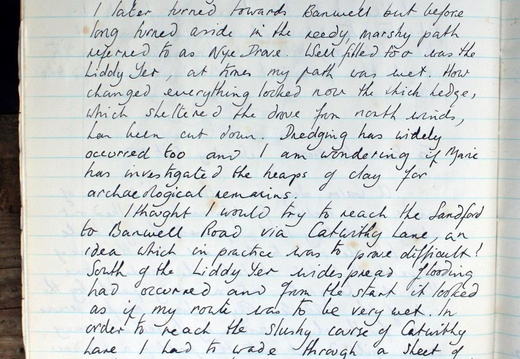 I later turned towards Banwell but before
long turned aside in the reedy, marshy path
referred to as Nye Drove. Well filled too was the
Liddy Yeo, at times my path was wet. How
changed everything looked now the thick hedge,
which sheltered the drove from north winds,
has been cut down. Dredging has widely
occurred too and I am wondering if Marie
has investigated the heaps of clay for
archaeological remains.
I thought I would try to reach the Sandford
to Banwell Road via Catwithy Lane, an
idea which in practice was to prove difficult!
South of the Liddy Yeo widespread flooding
had occurred and from the start it looked
as if my route was to be very wet. In
order to reach the slushy course of Catwithy
Lane I had to wade through a sheet of